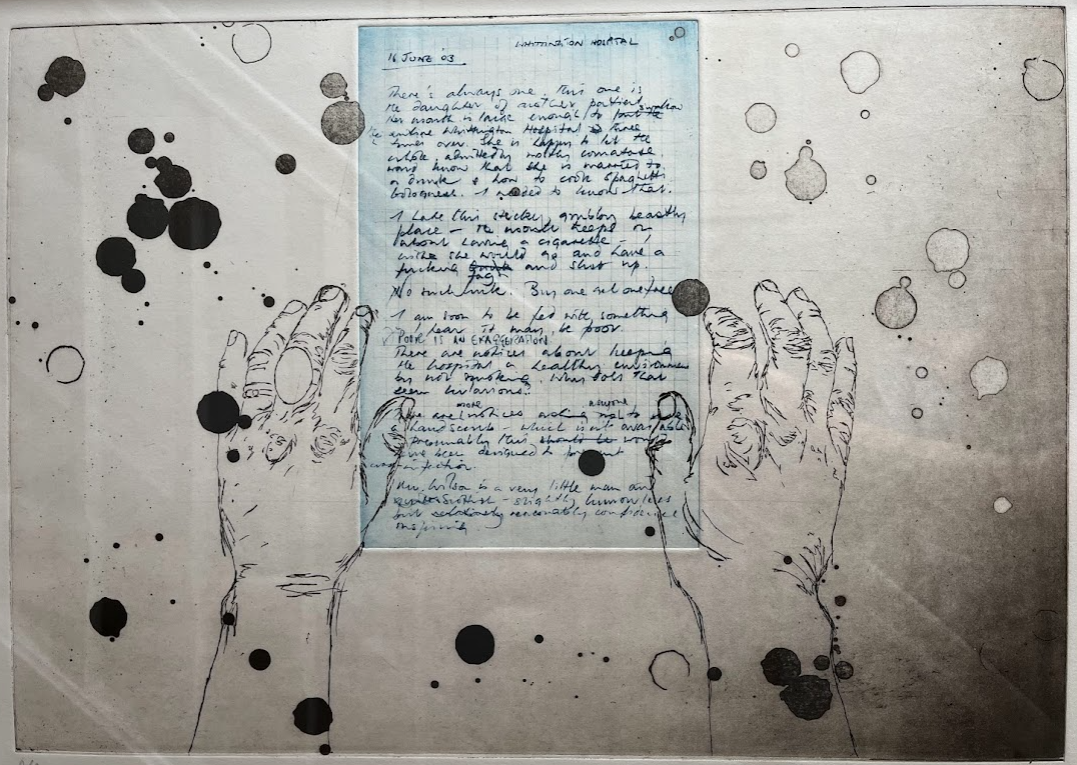 WHITTINGTON HOSPITAL
16 JUNE '03
There's always one. This one is
the daughter of another patient
Her mouth is large enough to swallow
the entire Whittington Hospital three
times over. She is happy to let the
whole, admittedly mostly comatose
ward know that she is married to
a drunk & how to cook Spaghetti
bolognese. I needed to know that.
I hate this sticky, grubby beastly
place – the mouth keeps on
about having a cigarette – I
wish she would go and have a
fucking fag and shut up.
No such luck. Buy one get one free
I am soon to be fed with something
I hear it may be poor.
POOR IS AN EXAGGERATION
There are notices about keeping
the hospital a healthy environment
by not smoking. Why does that
seem
more notices asking anyone not to
a handscrub – which isn't available
Presumably this should be
have been designed to prevent
infection.
Mr. Wilson is a very little man and
Scottish – slightly humourless
but reasonably confidence
inspiring